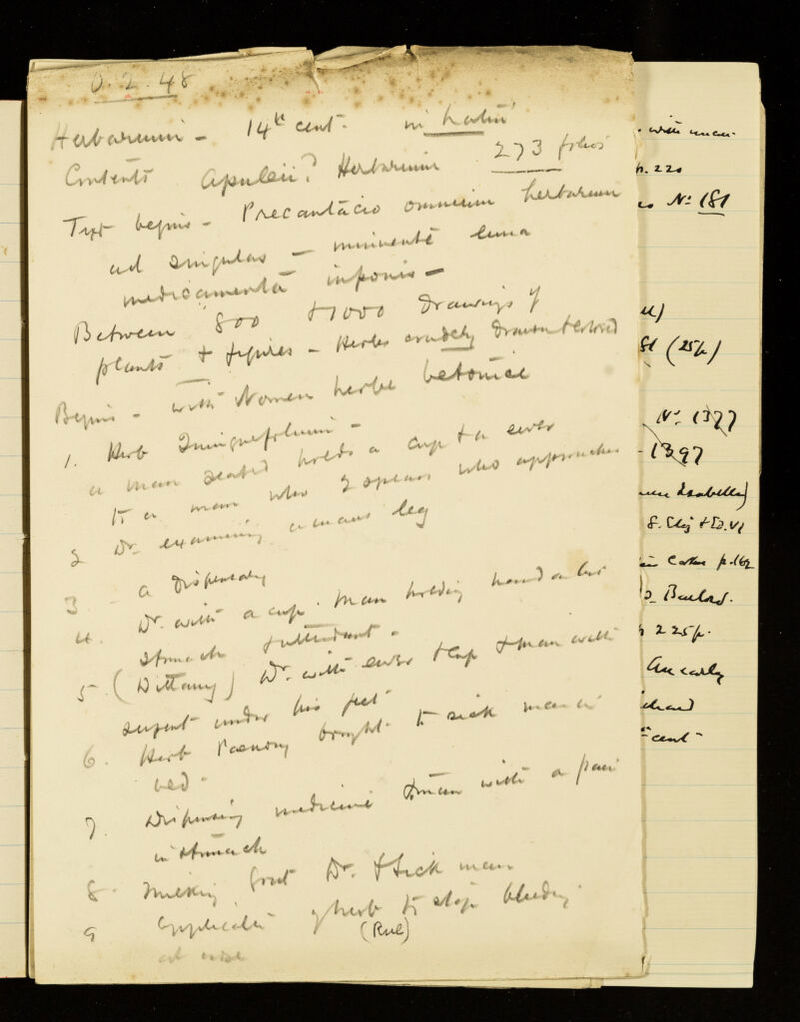 O.2.48
Herbarium - 14th cent. in Latin
Contents Apuleii? Herbarium 273 folios
Text begins - Precantacio omnium herbarum
ad singulas - luna
medicamenta inponis -
Between 800 + 1000 drawings of
plants + figures - Herbs crudely drawn + colored
Begins - with Nomen herbe betonice
1. Herb Quinquefolium -
a man seated holds a cup + a ewer
to a man who 2 spears who approaches
2 Dr. examining a mans leg
3 - a dispensary
4. Dr. with a cup. Man holding hand on his
stomach + attendant -
5. (Dittany) Dr. with ewer + cup + man with
serpent under his feet
6. Herb Paeony brought to sick man in
bed -
7. Dispensing medicine + man with a pain
in stomach
8. Milking goat Dr. + sick man
9 Application of herb to stop bleeding
(Rue)
at nose
with
p. 220
No 181
(25/-)
No. 1377
- 1397
Isabella)
8. Eliz + Ed. VI
p. 162
225/-
An early
cent -